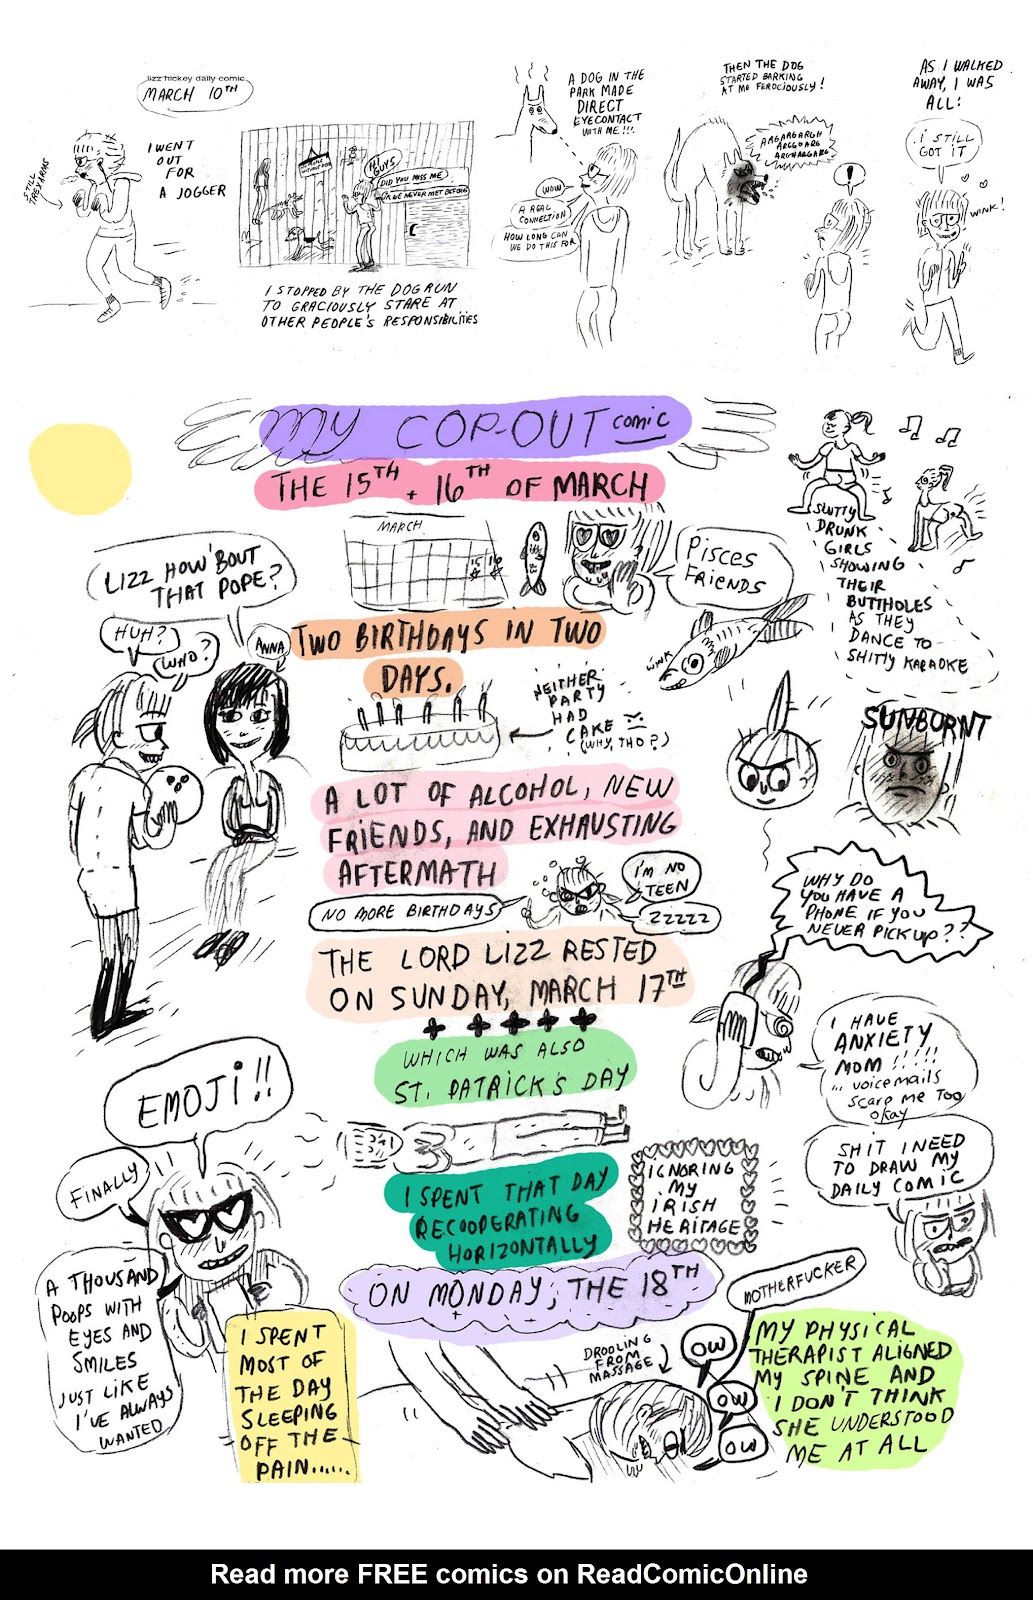 lizz hickey daily comic
MARCH 10TH
STILL
TREX ARMS
I WENT
OUT
FOR
A JOGGER
HI
GUYS
DID YOU MISS ME
OK WE NEVER MET BEFORE
I STOPPED BY THE DOG RUN
TO GRACIOUSLY STARE AT
OTHER PEOPLE'S RESPONSIBILITIES
A DOG IN THE
PARK MADE
DIRECT
EYECONTACT
WITH ME!!!
WOW
A REAL
CONNECTION
HOW LONG CAN
WE DO THIS FOR
THEN THE DOG
STARTED BARKING
AT ME FEROCIOUSLY!
ARGARGARGH
ARGGOARG
ARGHARGARG
!
AS I WALKED
AWAY, I WAS
ALL:
I STILL
GOT IT
WINK!
MY COP-OUT comic
THE 15TH + 16TH OF MARCH
MARCH
15 16
PISCES
FRIENDS
SLUTTY
DRUNK
GIRLS
SHOWING
THEIR
BUTTHOLES
AS THEY
DANCE TO
SHITTY KARAOKE
LIZZ HOW 'BOUT
THAT POPE?
HUH?
WHO?
ANNA
TWO BIRTHDAYS IN TWO
DAYS.
WINK
NEITHER
PARTY
HAD
CAKE
(WHY, THO?)
SUNBURNT
A LOT OF ALCOHOL, NEW
FRIENDS, AND EXHAUSTING
AFTERMATH
NO MORE BIRTHDAYS
I'M NO
TEEN
ZZZZZ
WHY DO
YOU HAVE A
PHONE IF YOU
NEVER PICK UP??
THE LORD LIZZ RESTED
ON SUNDAY, MARCH 17TH
WHICH WAS ALSO
ST. PATRICK'S DAY
I HAVE
ANXIETY
MOM !!!!!
... voicemails
scare me TOO
okay
EMOJI!!
FINALLY
A THOUSAND
POOPS WITH
EYES AND
SMILES
JUST LIKE
I'VE ALWAYS
WANTED
I SPENT THAT DAY
RECOOPERATING
HORIZONTALLY
IGNORING
MY
IRISH
HERITAGE
SHIT I NEED
TO DRAW MY
DAILY COMIC
ON MONDAY, THE 18TH
I SPENT
MOST OF
THE DAY
SLEEPING
OFF THE
PAIN......
DROOLING
FROM
MASSAGE
OW
OW
OW
MOTHERFUCKER
MY PHYSICAL
THERAPIST ALIGNED
MY SPINE AND
I DON'T THINK
SHE UNDERSTOOD
ME AT ALL
Read more FREE comics on ReadComicOnline